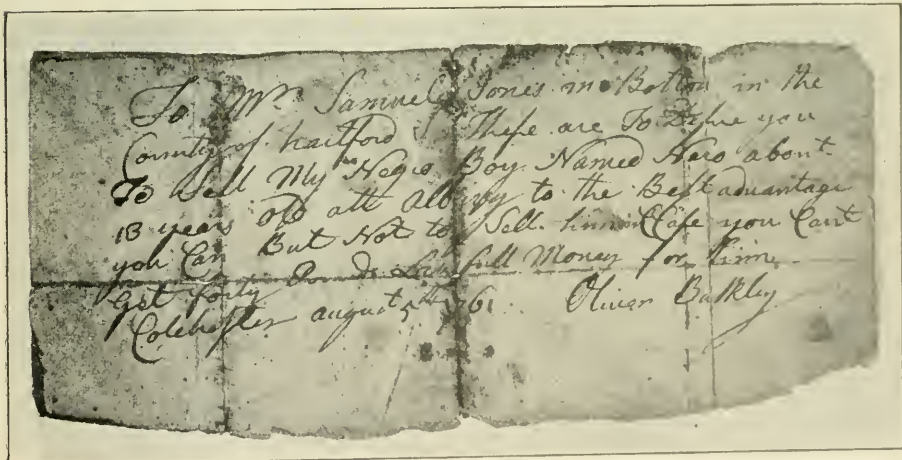 To Mr. Samuel Jones in Bolton in the
County of hartford / These are To Desire you
To Sell My Negro Boy Named Nero about
13 years old att Albany to the Best advantage
you Can But Not to Sell him in Case you Cant
Get forty Pounds Lawfull Money for him
Colchester august 5th 1761 Oliver Bulkley